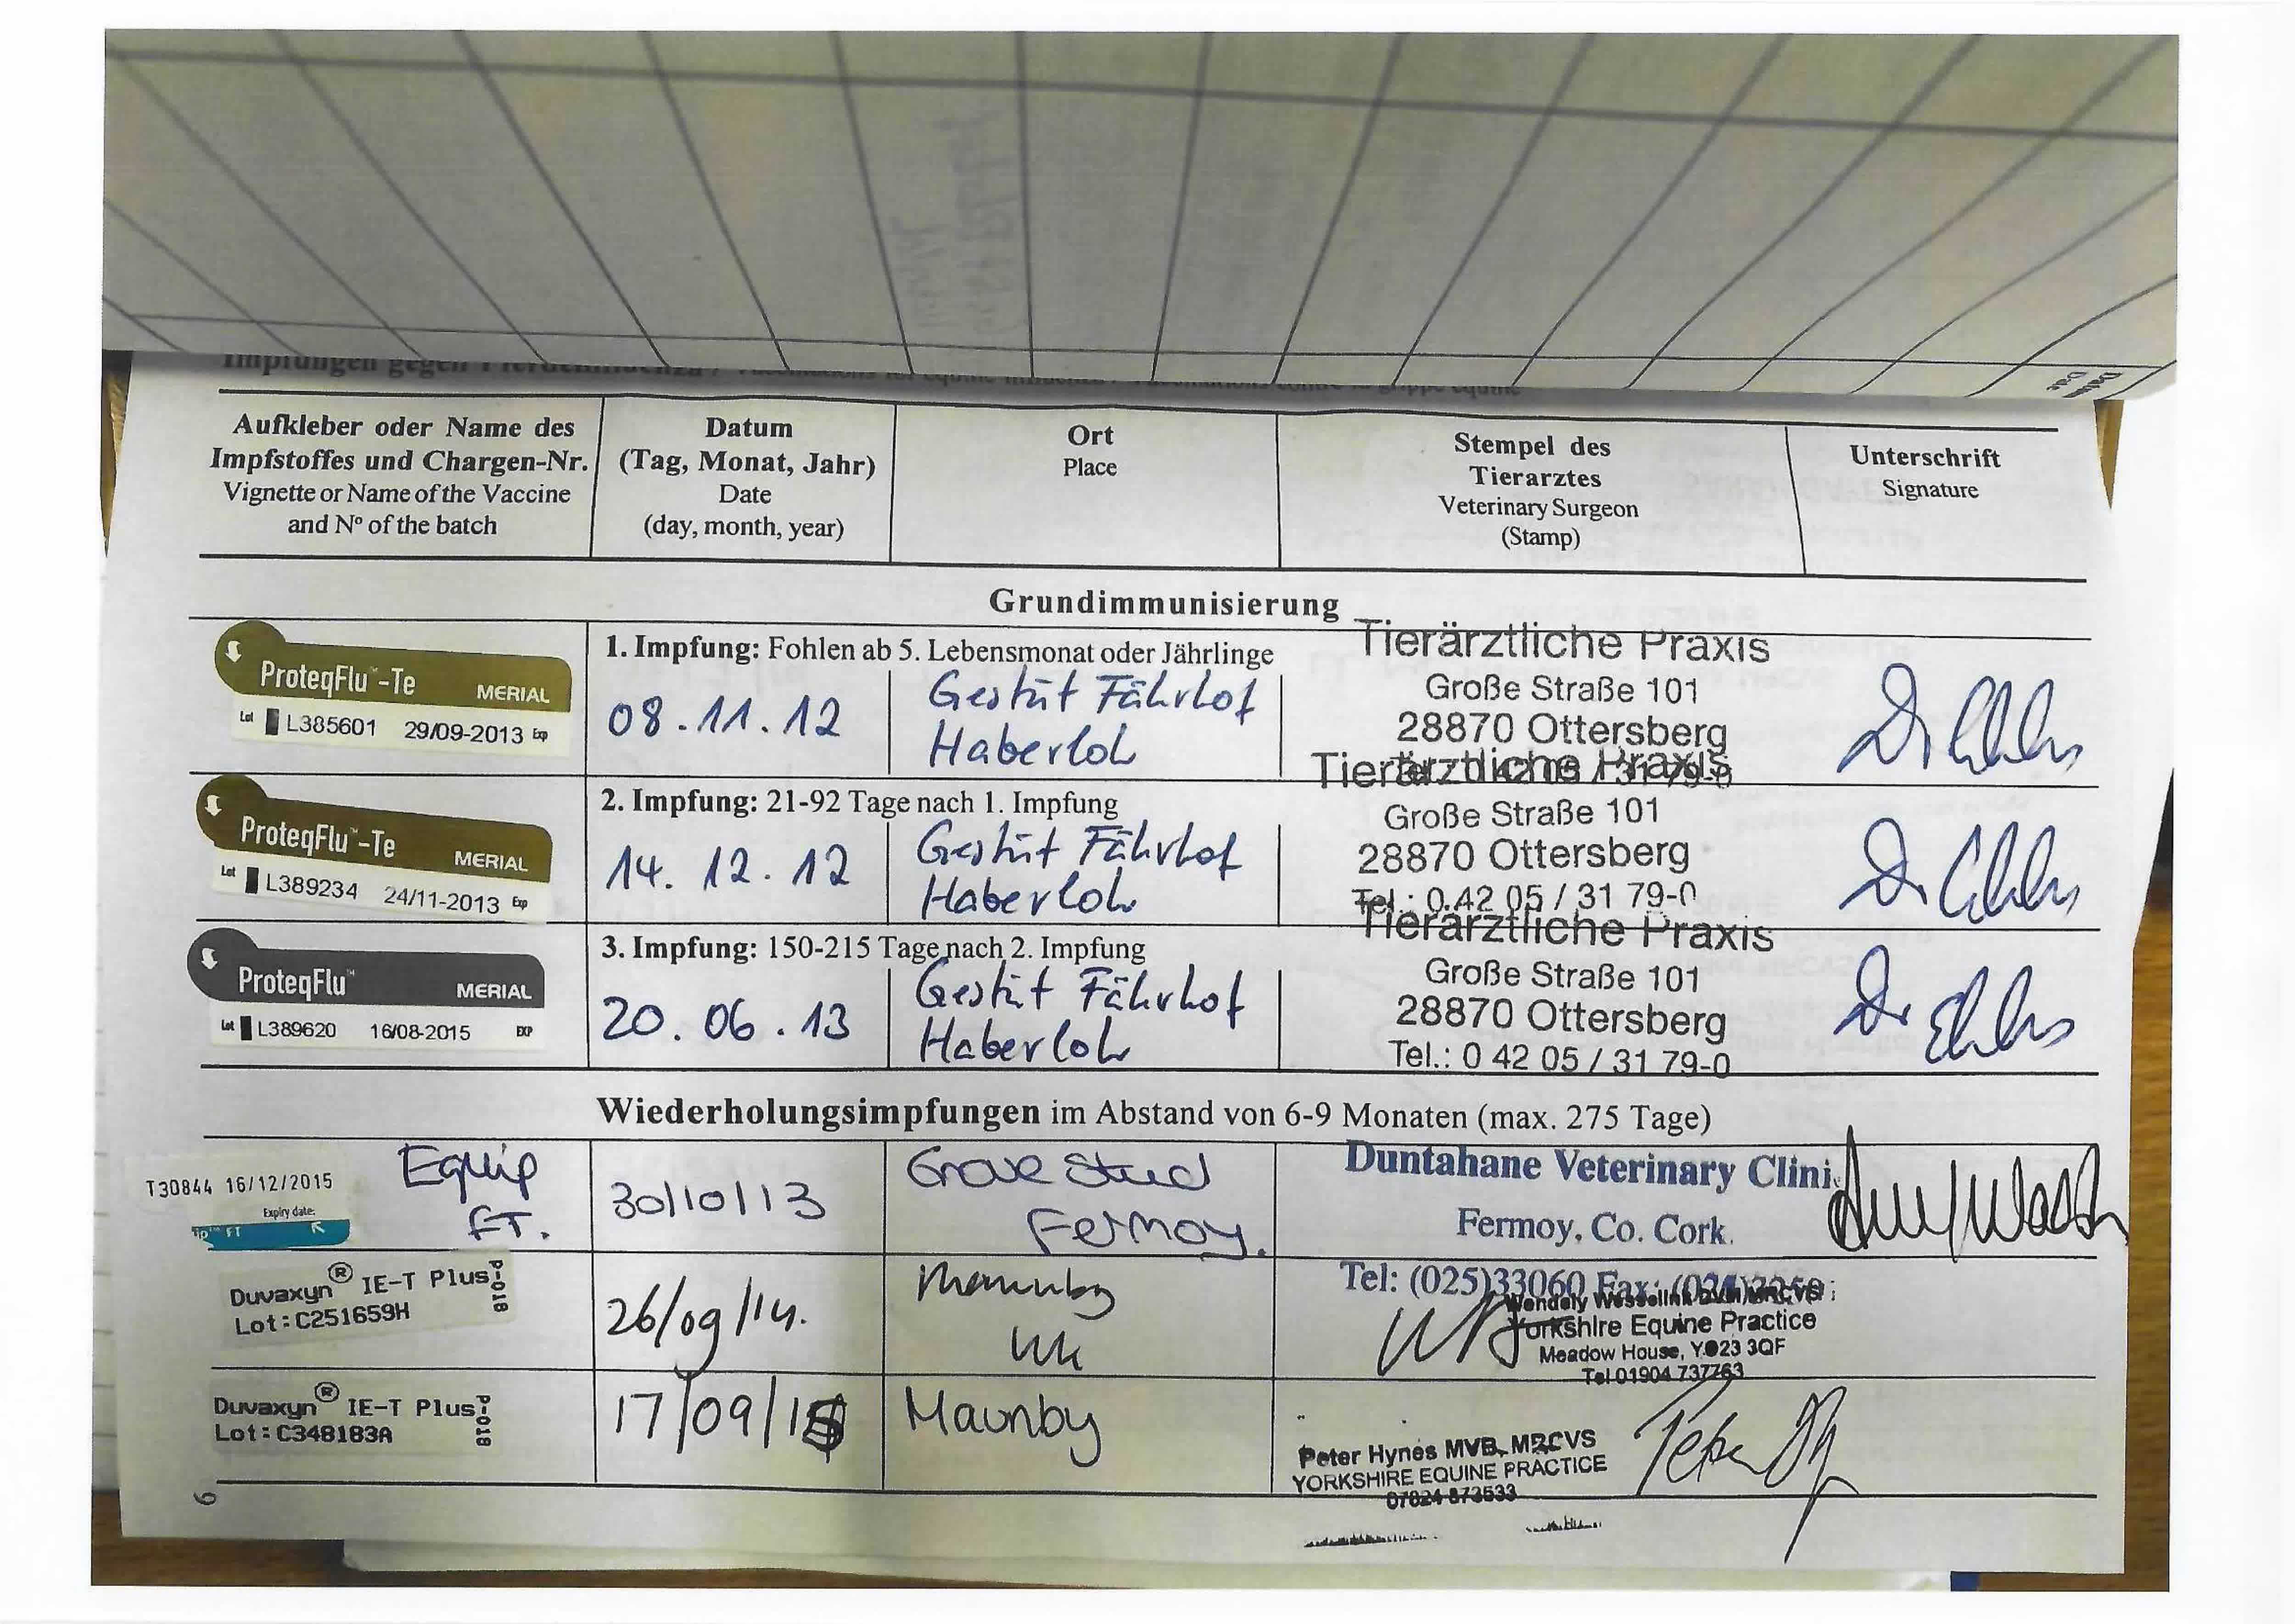 Impfungen gegen
Aufkleber oder Name des
Impfstoffes und Chargen-Nr.
Vignette or Name of the Vaccine
and Nº of the batch
Datum
(Tag, Monat, Jahr)
Date
(day, month, year)
Ort
Place
Stempel des
Tierarztes
Veterinary Surgeon
(Stamp)
Unterschrift
Signature
Grundimmunisierung
ProteqFlu™-Te MERIAL
Lot L385601 29/09-2013 Exp
1. Impfung: Fohlen ab 5. Lebensmonat oder Jährlinge
08.11.12
Gestüt Fährhof
Haberloh
Tierärztliche Praxis
Große Straße 101
28870 Ottersberg
ProteqFlu™-Te MERIAL
Lot L389234 24/11-2013 Exp
2. Impfung: 21-92 Tage nach 1. Impfung
14.12.12
Gestüt Fährhof
Haberloh
Tierärztliche Praxis
Große Straße 101
28870 Ottersberg
Tel.: 0 42 05 / 31 79-0
ProteqFlu™ MERIAL
Lot L389620 16/08-2015 EXP
3. Impfung: 150-215 Tage nach 2. Impfung
20.06.13
Gestüt Fährhof
Haberloh
Tierärztliche Praxis
Große Straße 101
28870 Ottersberg
Tel.: 0 42 05 / 31 79-0
Wiederholungsimpfungen im Abstand von 6-9 Monaten (max. 275 Tage)
T30844 16/12/2015
Expiry date:
FT
Equip
FT.
30/10/13
Grove Stud
Fermoy.
Duntahane Veterinary Clini
Fermoy, Co. Cork.
Tel: (025)33060 Fax:
Duvaxyn® IE-T Plus
Lot: C251659H
P-018
26/09/14.
Maunby
UK
Wendely Wesselink DVM MRCVS
Yorkshire Equine Practice
Meadow House, YO23 3QF
Tel 01904 737763
Duvaxyn® IE-T Plus
Lot: C348183A
P-018
17/09/15
Maunby
Peter Hynes MVB MRCVS
YORKSHIRE EQUINE PRACTICE
07824 873533
6